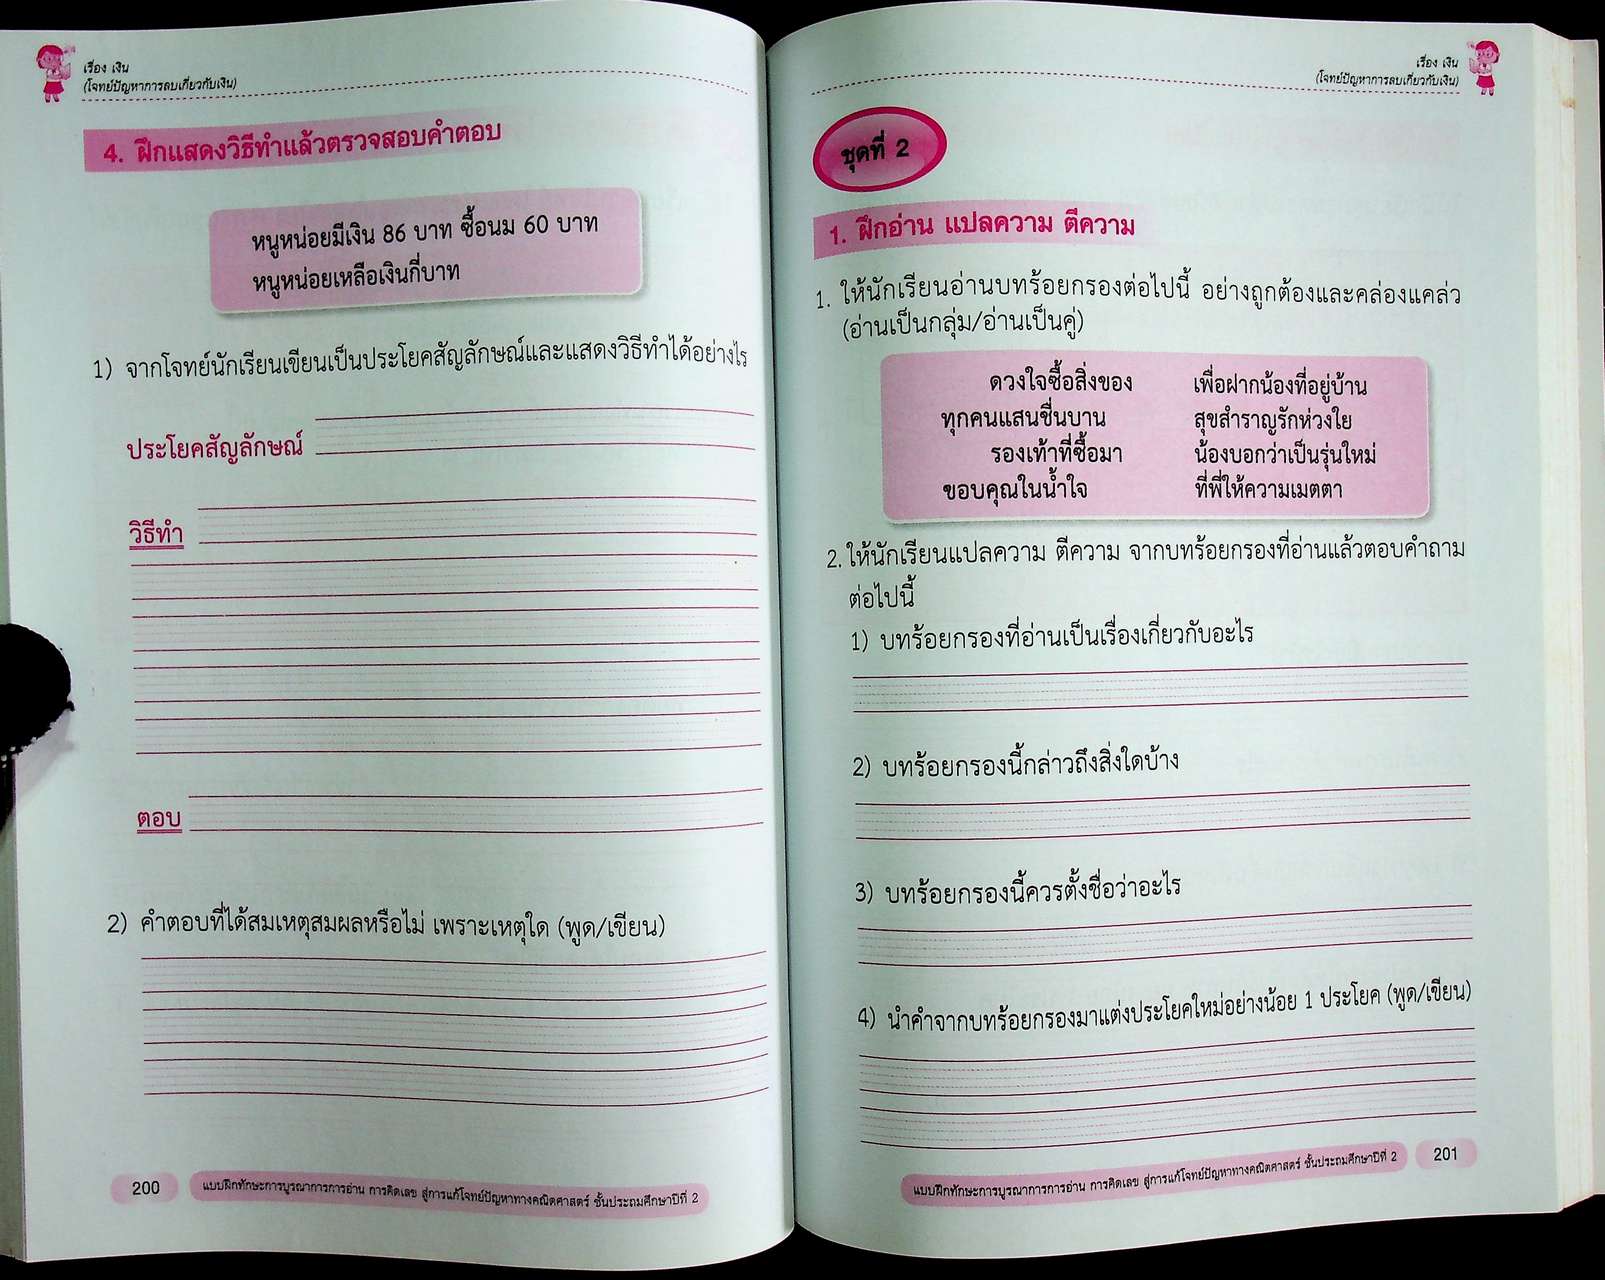 เรื่อง เงิน
(โจทย์ปัญหาการลบเกี่ยวกับเงิน)
4. ฝึกแสดงวิธีทำแล้วตรวจสอบคำตอบ
หนูหน่อยมีเงิน 86 บาท ซื้อนม 60 บาท
หนูหน่อยเหลือเงินกี่บาท
1) จากโจทย์นักเรียนเขียนเป็นประโยคสัญลักษณ์และแสดงวิธีทำได้อย่างไร
ประโยคสัญลักษณ์
วิธีทำ
ตอบ
2) คำตอบที่ได้สมเหตุสมผลหรือไม่ เพราะเหตุใด (พูด/เขียน)
200 แบบฝึกทักษะการบูรณาการการอ่าน การคิดเลข สู่การแก้โจทย์ปัญหาทางคณิตศาสตร์ ชั้นประถมศึกษาปีที่ 2
เรื่อง เงิน
(โจทย์ปัญหาการลบเกี่ยวกับเงิน)
ชุดที่ 2
1. ฝึกอ่าน แปลความ ตีความ
1. ให้นักเรียนอ่านบทร้อยกรองต่อไปนี้ อย่างถูกต้องและคล่องแคล่ว
(อ่านเป็นกลุ่ม/อ่านเป็นคู่)
ดวงใจซื้อสิ่งของ เพื่อฝากน้องที่อยู่บ้าน
ทุกคนแสนชื่นบาน สุขสำราญรักห่วงใย
รองเท้าที่ซื้อมา น้องบอกว่าเป็นรุ่นใหม่
ขอบคุณในน้ำใจ ที่พี่ให้ความเมตตา
2. ให้นักเรียนแปลความ ตีความ จากบทร้อยกรองที่อ่านแล้วตอบคำถาม
ต่อไปนี้
1) บทร้อยกรองที่อ่านเป็นเรื่องเกี่ยวกับอะไร
2) บทร้อยกรองนี้กล่าวถึงสิ่งใดบ้าง
3) บทร้อยกรองนี้ควรตั้งชื่อว่าอะไร
4) นำคำจากบทร้อยกรองมาแต่งประโยคใหม่อย่างน้อย 1 ประโยค (พูด/เขียน)
แบบฝึกทักษะการบูรณาการการอ่าน การคิดเลข สู่การแก้โจทย์ปัญหาทางคณิตศาสตร์ ชั้นประถมศึกษาปีที่ 2 201